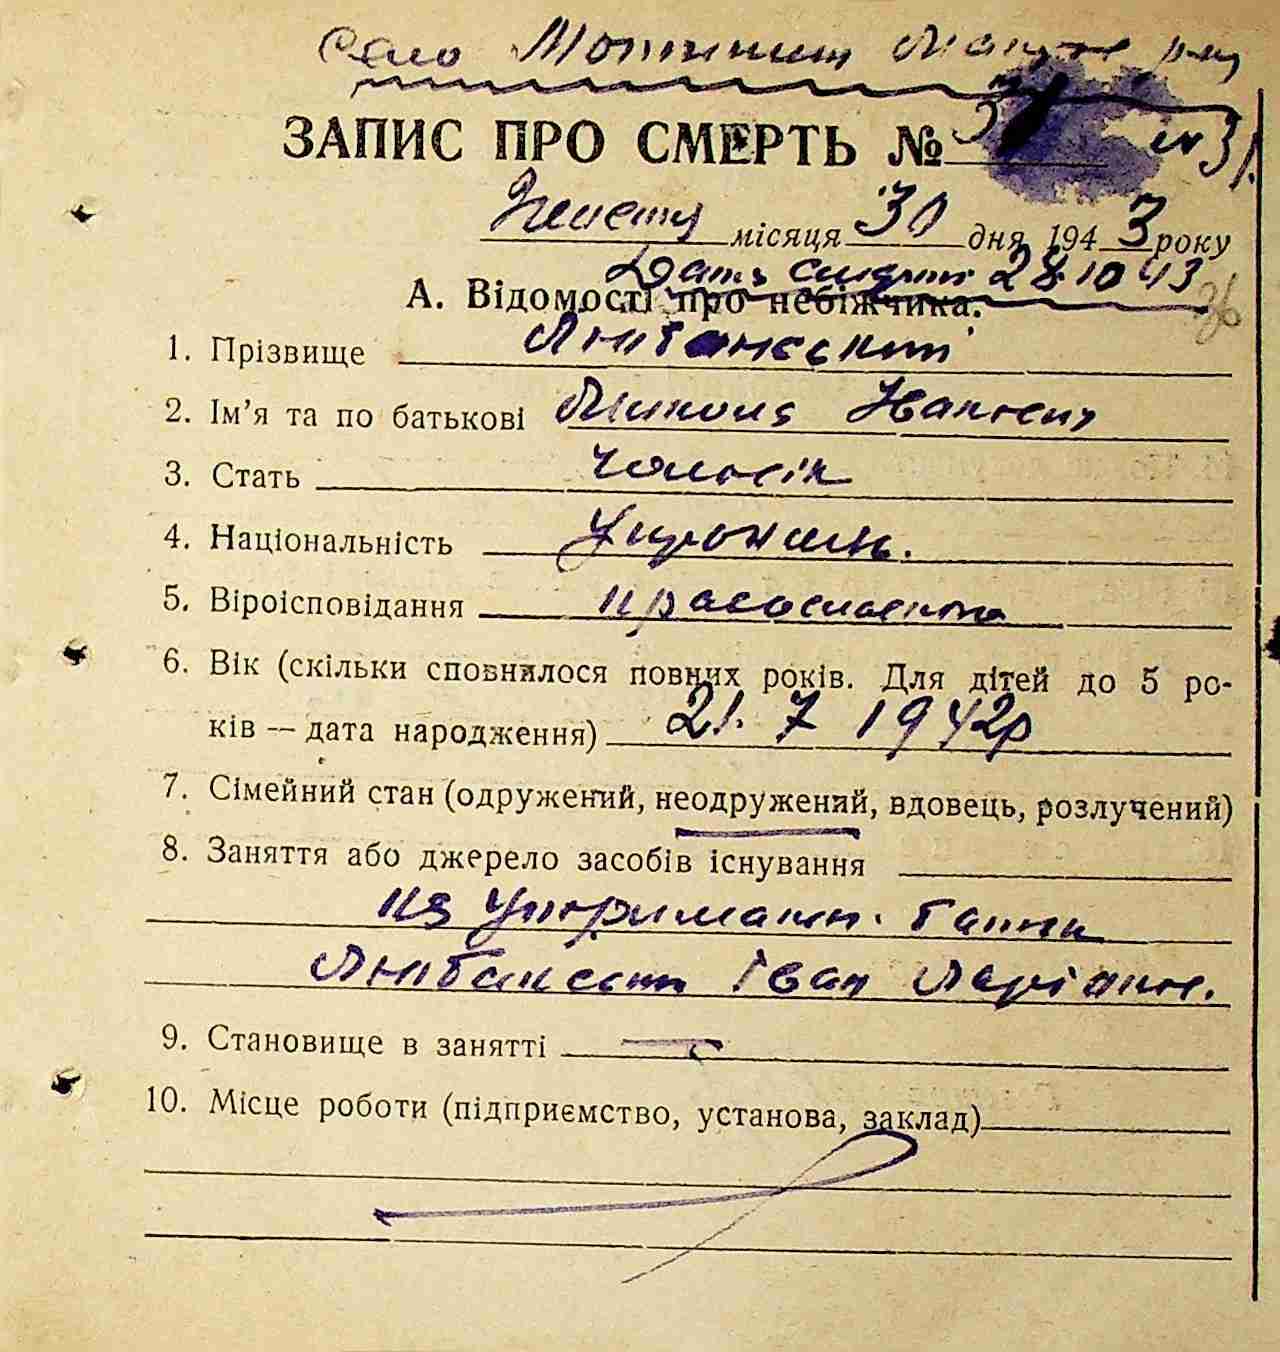 Село
ЗАПИС ПРО СМЕРТЬ № 31 № 31.
місяця 30 дня 1943 року
Дата смерти 28.10 43
А. Відомості про небіжчика.
36
1. Прізвище Любанський
2. Ім'я та по батькові Микола Іванович
3. Стать чоловік
4. Національність Українець.
5. Віроісповідання православна
6. Вік (скільки сповнилося повних років. Для дітей до 5 ро-
ків — дата народження) 21. 7 1942р
7. Сімейний стан (одружений, неодружений, вдовець, розлучений)
8. Заняття або джерело засобів існування
на утриманн.
Любанськ Іван
9. Становище в занятті —
10. Місце роботи (підприємство, установа, заклад)